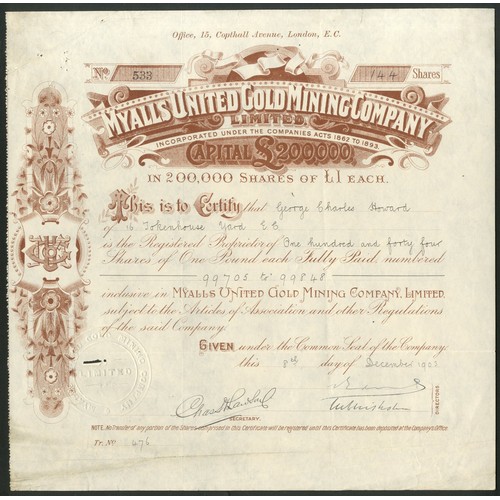 Office, 15, Copthall Avenue, London, E.C.
No. 533 144 Shares
MYALLS UNITED GOLD MINING COMPANY
LIMITED.
INCORPORATED UNDER THE COMPANIES ACTS 1862 TO 1893.
CAPITAL £200,000
IN 200,000 SHARES OF £1 EACH.
This is to Certify that George Charles Howard
of 16 Tokenhouse Yard E.C.
is the Registered Proprietor of One hundred and forty four
Shares of One Pound each Fully Paid numbered
99705 to 99848
inclusive in MYALLS UNITED GOLD MINING COMPANY, LIMITED,
subject to the Articles of Association and other Regulations
of the said Company.
GIVEN under the Common Seal of the Company
this 8th day of December 1902
LIMITED
DIRECTORS
SECRETARY.
NOTE. No Transfer of any portion of the Shares comprised in this Certificate will be registered until this Certificate has been deposited at the Company's Office.
Tr. No. 276